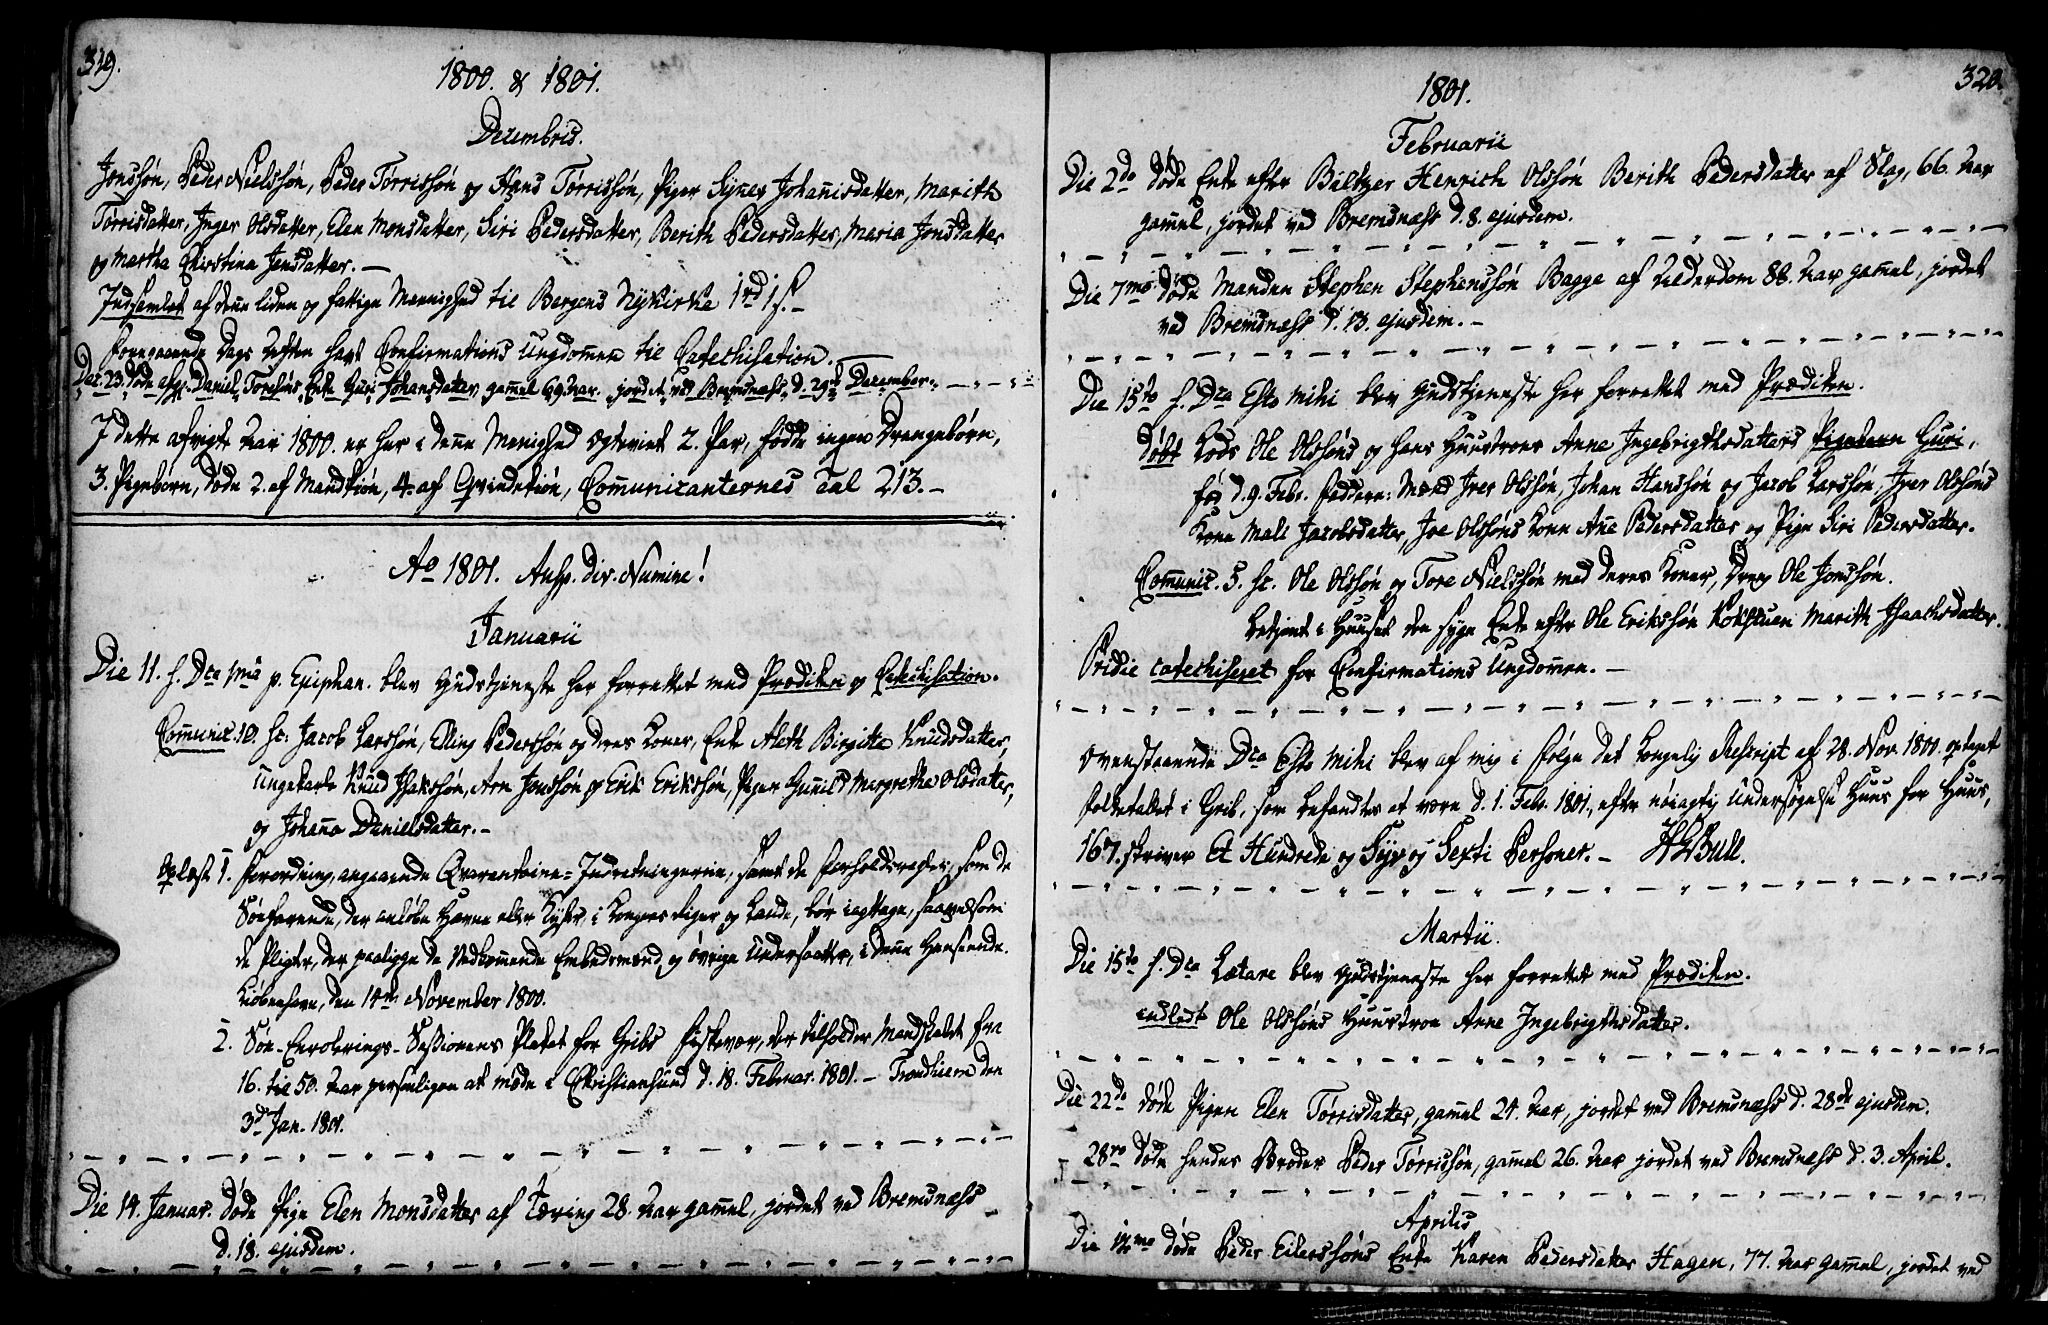 319.
1800. & 1801.
Decembris.
Jonssøn, Peder Nielssøn, Peder Tørrissøn og Hans Tørrissøn, Piger Signer Johanisdatter, Marith
Tørrisdatter, Inger Olsdatter, Elen Monsdatter, Siri Pedersdatter, Berith Pedersdatter, Maria Jonsdatter
og Martha Christina Jensdatter. —
Indsamlet af denne liden og fattige Menighed til Bergens Nykirke 1 rd 1 s. –
Foregaaende Dags Aften havt Confirmations Ungdommen til Catechisation.
Dec. 23. døde afg. Daniel Toresøns Enke Guri Johansdatter, gammel 69 Aar. jordet ved Bremsnæss d. 29de December.
I dette afvigte Aar 1800. er her i denne Menighed Ægteviet 2. Par, fødde ingen Drengebørn,
3. Pigebørn, døde 2. af Mandkiøn, 4. af Qvindekiøn, Communicanternes Tal 213. –
Ao 1801. Ausp. div. Numine!
Januarii
Die 11. f. Dca 1ma p. Epiphan. blev Gudstjeneste her forrettet med Prædiken og Catechisation.
Communic. 10. sc. Jacob Larssøn, Elling Pederssøn og deres Koner, Enke Aleth Birgitta Knudsdatter,
Ungekarle Knud Isakssøn, Arn Jonssøn og Erik Erikssøn, Piger Gunild Margretha Olsdatter,
og Johanna Danielsdatter. –
Oplæst 1. Forordning, angaaende Qvarantaine-Indretningerne, samt de Forholdsregler, som de
Søefarende, der anløbe Havne eller Kyster, i Kongens Riger og Lande, bør iagttage, saavelsom
de Pligter, der paaligge de Vedkommende Embedsmænd og øvrige Undersaatter, i denne Henseende.
Kiøbenhavn, den 14de November 1800.
2. Søe-Enrollerings-Sessionens Placat for Gribs Fiskevær, der tilholder Mandskabet fra
16. til 50. Aar personligen at møde i Christiansund d. 18. Februar. 1801. – Trondhiem den
3d Jan. 1801.
Die 14. Januar. døde Pige Elen Monsdatter af Tæring 28. Aar gammel, jordet ved Bremsnæss
d. 18. ejusdem.
320.
1801.
Februarii
Die 2do døde Enke efter Baltzer Henrich Olssøn Berith Pedersdatter af Slag, 66. Aar
gammel, jordet ved Bremsnæss d. 8. ejusdem.
Die 7mo døde Manden Stephen Stephenssøn Bagge af Alderdom 88. Aar gammel, jordet
ved Bremsnæss d. 13. ejusdem. –
Die 15to f. Dca Esto mihi blev Gudstjeneste her forrettet med Prædiken.
Døbt Lods Ole Olssøns og hans Huustroes Anne Ingebrigthsdatters Pigebarn Guri,
fød d. 9. Febr. Faddere: Mænd Iver Olssøn, Johan Hanssøn og Jacob Larssøn, Iver Olssøns
Kone Mali Jacobsdatter, Joe Olssøns Kone Ane Pedersdatter og Pige Siri Pedersdatter.
Communic. 5. sc. Ole Olssøn og Tore Nielssøn med deres Koner, Dreng Ole Jonssøn.
betjent i Huuset den syge Enke efter Ole Erikssøn Kokstuen Marith Isaachsdatter.
Pridie catechiseret for Confirmations Ungdommen. –
Ovenstaaende Dca Esto mihi blev af mig i Følge det Kongelig Rescript af 28. Nov. 1800. optaget
Folketallet i Grib, som befandtes at være d. 1. Febr. 1801, efter nøiagtig Undersøgelse Huus for Huus,
167. skriver Et Hundrede og Syv og Sexti Personer. – HGBull.
Martii.
Die 15to f. Dca Lætare blev Gudstjeneste her forrettet med Prædiken.
indledt Ole Olssøns Huustroe Anne Ingebrigthsdatter.
Die 22do døde Pigen Elen Tørrisdatter, gammel 24. Aar, jordet ved Bremsnæss d. 28de ejusdem.
28vo døde hendes Broder Peder Tørrissøn, gammel 26. Aar jordet ved Bremsnæss d. 3. April.
Aprilis
Die døde Peder Eilerssøns Enke Karen Pedersdatter Hagen, 77. Aar gammel, jordet ved